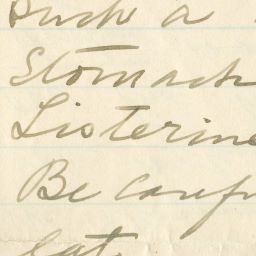 such a
Stomach
Listerine
Be caref
eat